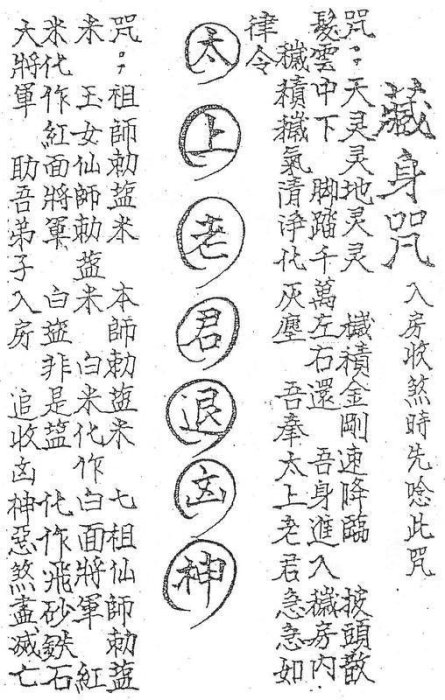 藏身咒 入房收煞時先唸此咒
咒:天灵灵地灵灵 穢積金剛速降臨 披頭散
髮雲中下 脚踏千萬左右還 吾身進入穢房內
穢積穢氣清淨化灰塵 吾奉太上老君急急如
律令
太上老君退㐫神
咒:祖師勅盐米 本師勅盐米 七祖仙師勅盐
米 玉女仙師勅盐米 白米化作白面將軍 紅
米化作紅面將軍 白盐非是盐 化作飛砂鉄石
大將軍 助吾弟子入房 追收㐫神惡煞盡滅亡